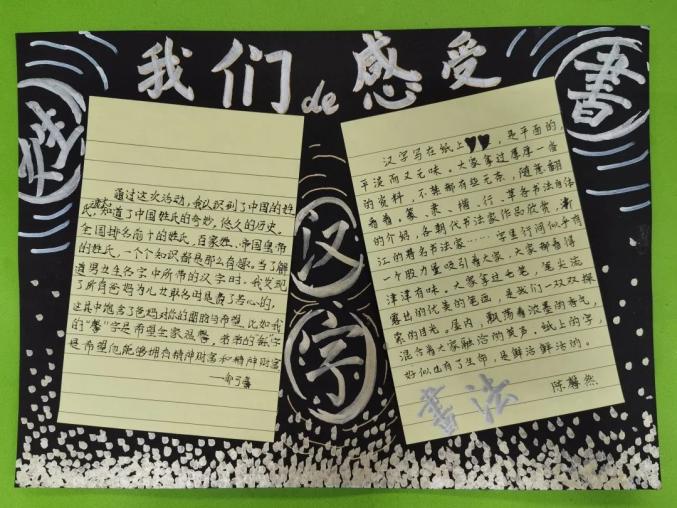 我们de感受
姓
书
汉
字
通过这次活动,我认识到了中国的姓
氏,知道了中国姓氏的奇妙,悠久的历史,
全国排名前十的姓氏,百家姓、帝国皇帝
的姓氏,一个个知识都是那么有趣。当了解
道男女生名字中所带的汉字时,我发现
了所有爸妈为儿女取名时是费了苦心的,
这其中饱含了爸妈对你的期盼与希望,比如我
的“馨”字是希望全家温馨,弟弟的“”字
是希望他能够拥有精神财富和精神财富
汉字写在纸上,是平面的,
平淡而又无味。大家拿过厚厚一叠
的资料,不禁都有些无奈,随意翻
看看。篆、隶、楷、行、草各书法字体
的介绍,各朝代书法家作品欣赏,浙
江的著名书法家……字里行间似乎有
一个股力量吸引着大家,大家都看得
津津有味。大家拿过毛笔,笔尖流
露出的优美的笔画,是我们一双双探
索的目光。屋内,飘荡着浓墨的香气,
混合着大家融洽的笑声。纸上的字,
好似也有了生命,是鲜活鲜活的。
陈馨然
書法